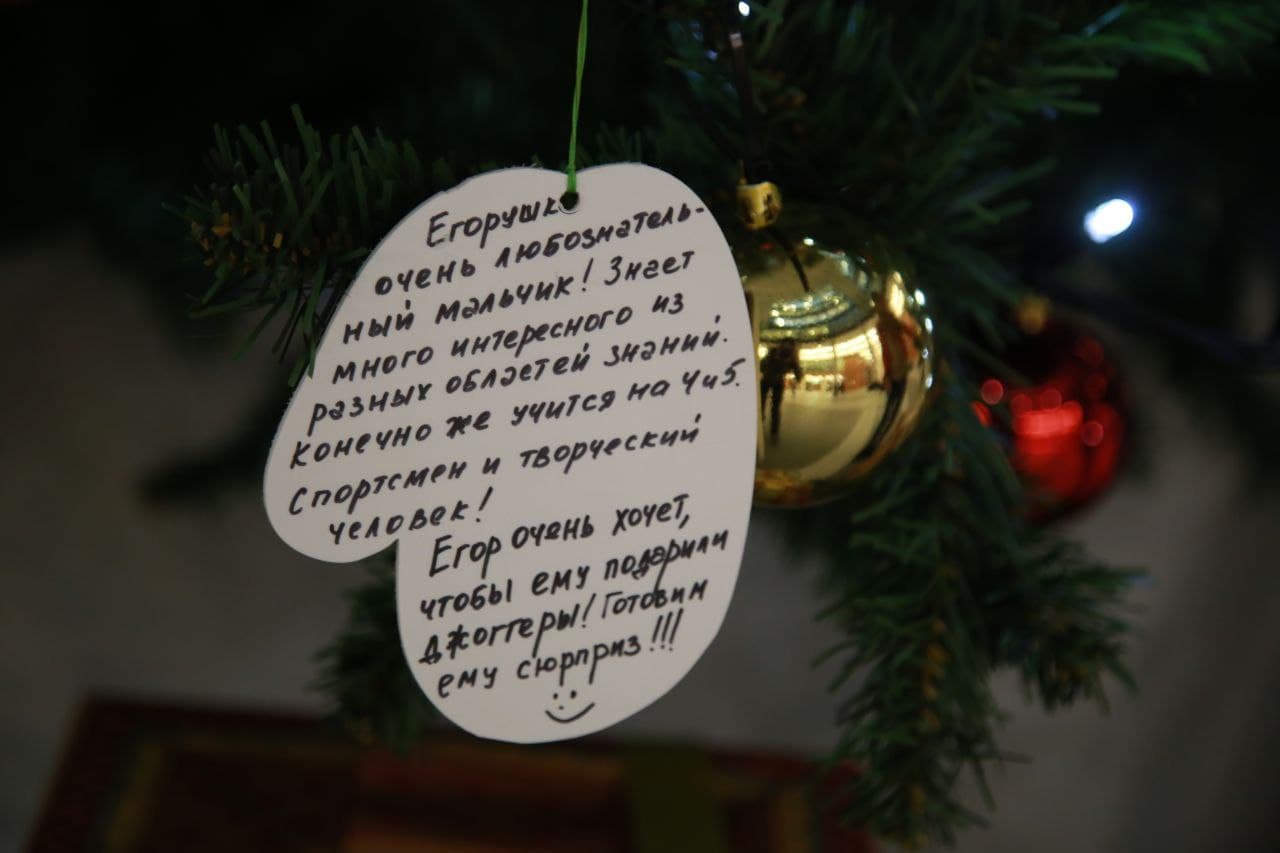 Егорушк
очень любознатель-
ный мальчик! Знает
много интересного из
разных областей знаний.
Конечно же учится на 4 и 5.
Спортсмен и творческий
человек!
Егор очень хочет,
чтобы ему подарили
джоггеры! Готовим
ему сюрприз!!!